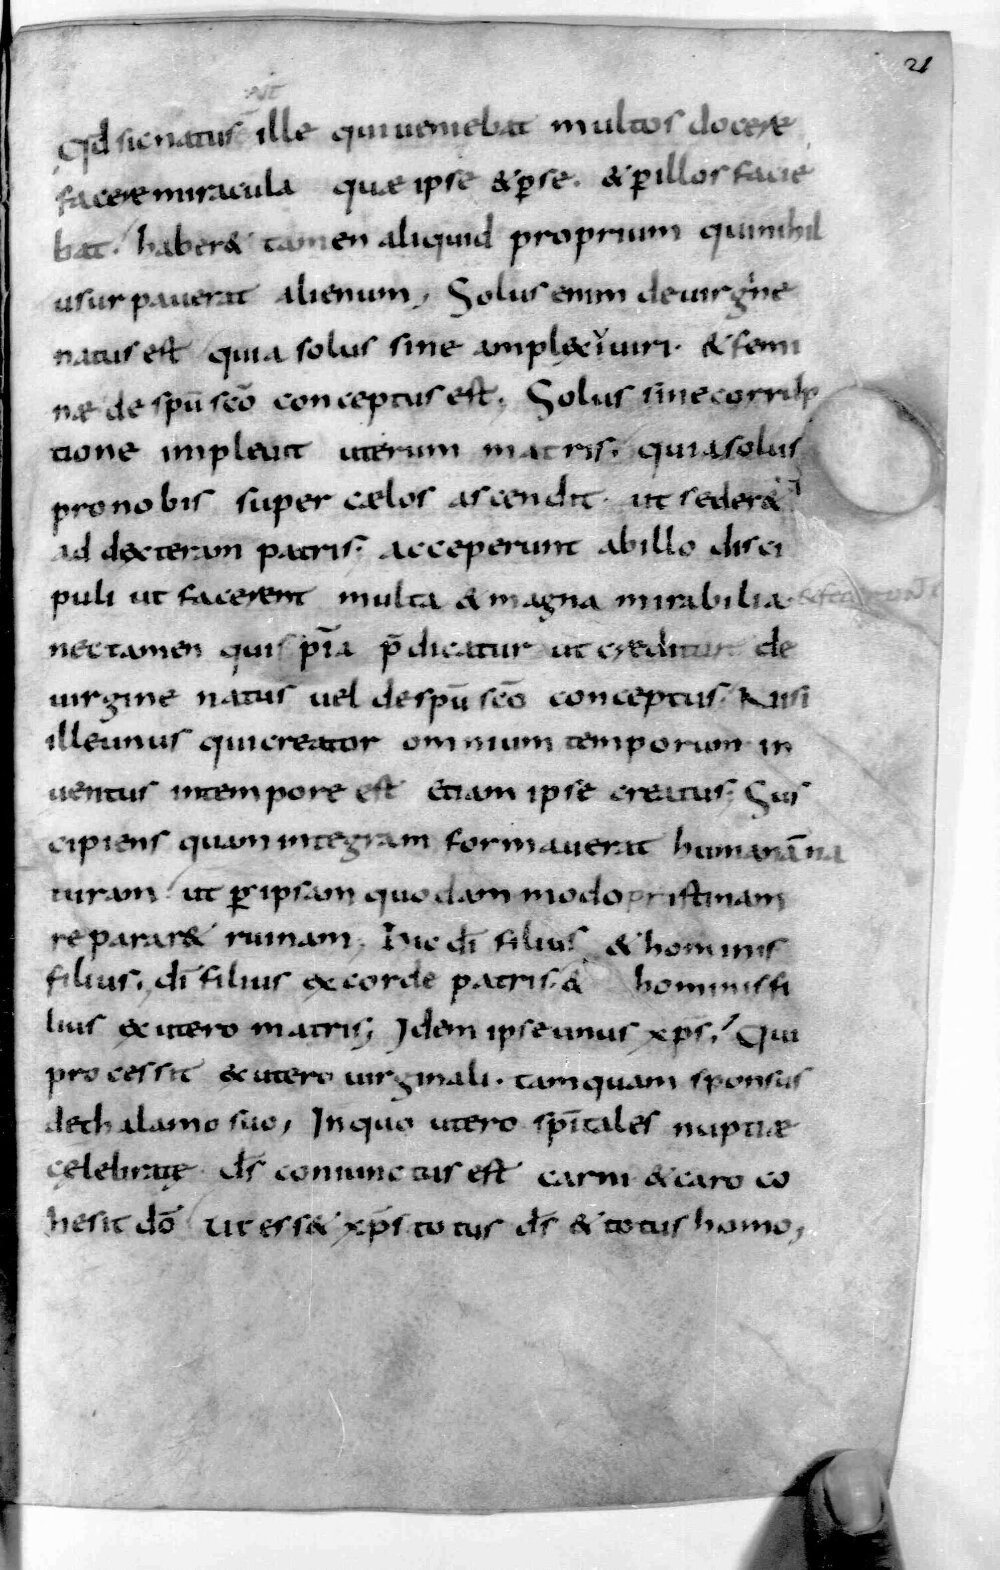 21
Qd sic natus ille qui ueniebat multos docere
facere miracula quae ipse & p̱ se. & p̱ illos facie
bat. haber& tamen aliquid proprium qui nihil
usurpauerat alienum, Solus enim de uirgine
natus est quia solus sine amplexu uiri. & femi
nae de spū scō conceptus est, Solus sine corrup
tione impleuit uterum matris. quia solus
pro nobis super caelos ascendit. ut seder&
ad dexteram patris; acceperunt ab illo disci
puli ut facerent multa & magna mirabilia. & fecerunt
nec tamen quis p̄dicatur ut creditur de
uirgine natus uel de spū scō conceptus. Nisi
ille unus qui creator omnium temporum in
uentus in tempore est etiam ipse creatus; Sus
cipiens quam integram formauerat humanā na
turam ut p̱ ipsam quodam modo pristinam
reparar& ruinam, Hic dī filius & hominis
filius. dī filius ex corde patris. & hominis fi
lius ex utero matris; Idem ipse unus xp̄s, Qui
processit ex utero uirginali. tamquam sponsus
de thalamo suo, In quo utero sp̄itales nuptiae
cęlebratę d̄s coniunctus est carni & caro co
hesit dō ut ess& xp̄s totus d̄s & totus homo,